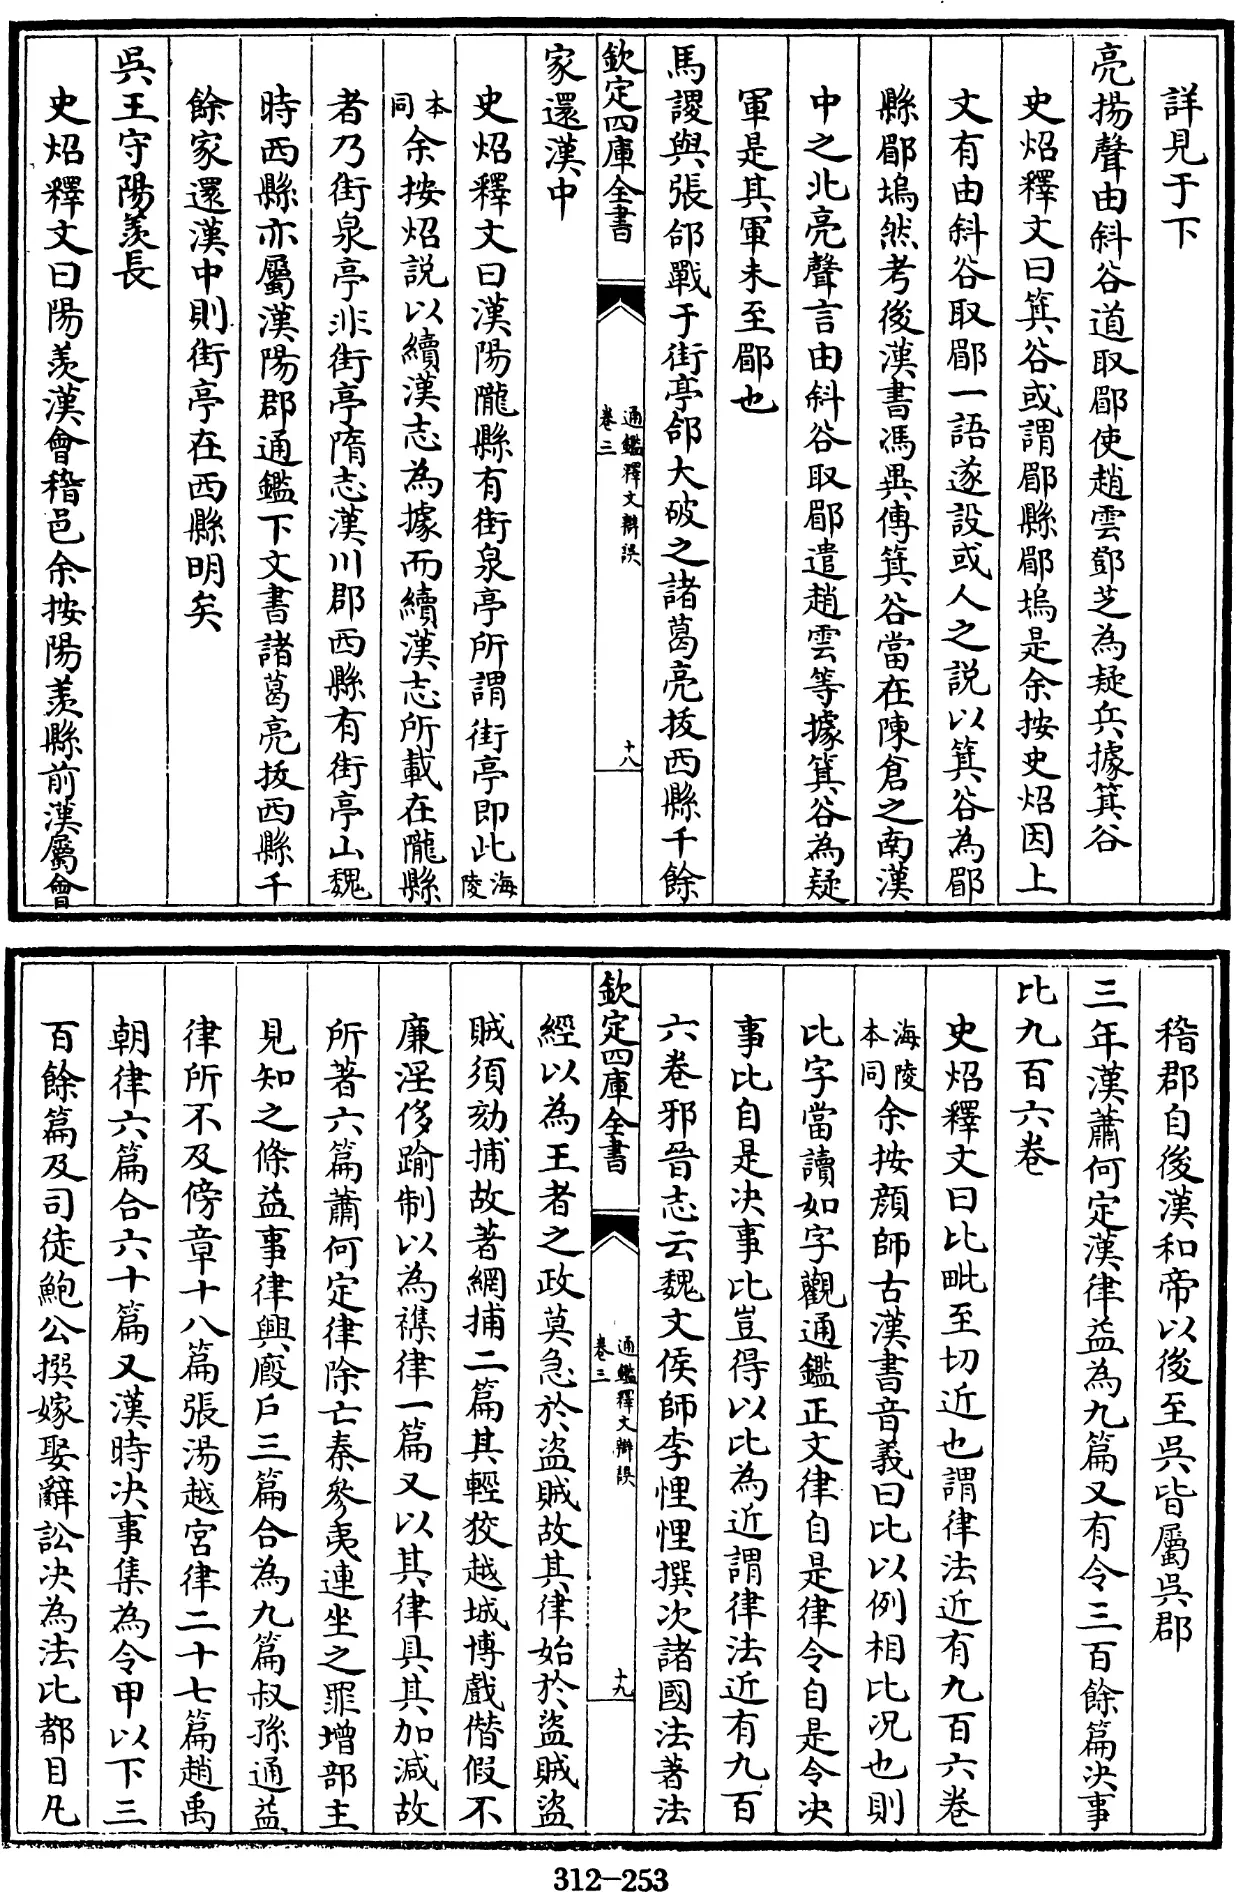 詳見于下
亮揚聲由斜谷道取郿使趙雲鄧芝為疑兵據箕谷
史炤釋文曰箕谷或謂郿縣郿塢是余按史炤因上
文有由斜谷取郿一語遂設或人之説以箕谷為郿
縣郿塢然考後漢書馮異傳箕谷當在陳倉之南漢
中之北亮聲言由斜谷取郿遣趙雲等據箕谷為疑
軍是其軍未至郿也
馬謖與張郃戰于街亭郃大破之諸葛亮拔西縣千餘
欽定四庫全書
通鑑釋文辯誤
卷三
十八
家還漢中
史炤釋文曰漢陽隴縣有街泉亭所謂街亭即此海陵
本同余按炤説以續漢志為據而續漢志所載在隴縣
者乃街泉亭非街亭隋志漢川郡西縣有街亭山魏
時西縣亦屬漢陽郡通鑑下文書諸葛亮拔西縣千
餘家還漢中則街亭在西縣明矣
吳王守陽羨長
史炤釋文曰陽羨漢會稽邑余按陽羨縣前漢屬會
稽郡自後漢和帝以後至吳皆屬吳郡
三年漢蕭何定漢律益為九篇又有令三百餘篇決事
比九百六卷
史炤釋文曰比毗至切近也謂律法近有九百六卷
海陵本同余按顔師古漢書音義曰比以例相比况也則
比字當讀如字觀通鑑正文律自是律令自是令决
事比自是决事比豈得以比為近謂律法近有九百
六卷邪晉志云魏文侯師李悝悝撰次諸國法著法
欽定四庫全書
通鑑釋文辯誤
卷三
十九
經以為王者之政莫急於盜賊故其律始於盜賊盜
賊須劾捕故著網捕二篇其輕狡越城博戲借假不
廉淫侈踰制以為襍律一篇又以其律具其加減故
所著六篇蕭何定律除亡秦參夷連坐之罪增部主
見知之條益事律興廐戶三篇合為九篇叔孫通益
律所不及傍章十八篇張湯越宮律二十七篇趙禹
朝律六篇合六十篇又漢時决事集為令甲以下三
百餘篇及司徒鮑公撰嫁娶辭訟决為法比都目凡
312-253